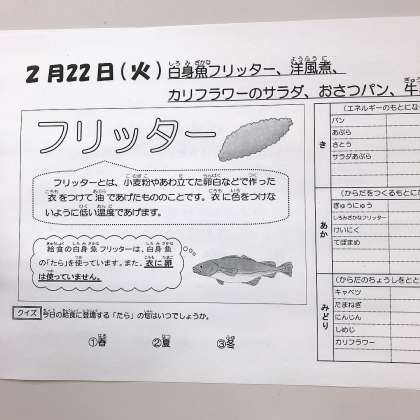 2月22日(火)白身魚フリッター、洋風煮、
カリフラワーのサラダ、おさつパン、牛
フリッター
フリッターとは、小麦粉やあわ立てた卵白などで作った
衣をつけて油であげたもののことです。衣に色をつけな
いように低い温度であげます。
給食の白身魚フリッターは、白身魚
の「たら」を使っています。また、衣に卵
は使っていません。
クイズ 今日の給食に登場する「たら」の旬はいつでしょうか。
①春 ②夏 ③冬
き
(エネルギーのもとにな
パン
あぶら
さとう
サラダあぶら
あか
(からだをつくるもとに
ぎゅうにゅう
しろみざかなフリッター
けいにく
てぼまめ
みどり
(からだのちょうしをとと
キャベツ
たまねぎ
にんじん
しめじ
カリフラワー